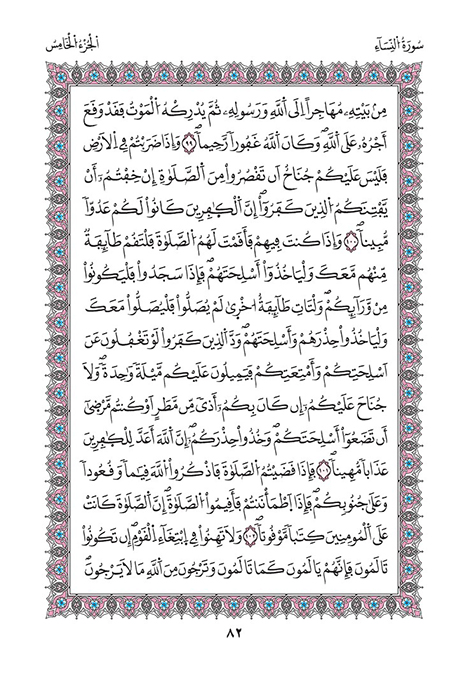 سُورَةُ النِّسَآءِ
اَلْجُزْءُ الْخَامِسُ
مِنۢ بَيْتِهِۦ مُهَاجِراً اِلَى اَللَّهِ وَرَسُولِهِۦ ثُمَّ يُدْرِكْهُ اُلْمَوْتُ فَقَدْ وَقَعَ
أَجْرُهُۥ عَلَى اَللَّهِۖ وَكَانَ اَللَّهُ غَفُوراً رَّحِيماًۖ ٩٩ وَإِذَا ضَرَبْتُمْ فِے اِلَارْضِ
فَلَيْسَ عَلَيْكُمْ جُنَاحٌ اَن تَقْصُرُواْ مِنَ اَلصَّلَوٰةِ إِنْ خِفْتُمُۥٓ أَنْ
يَّفْتِنَكُمُ اُلذِينَ كَفَرُوٓاْۖ إِنَّ اَلْكٰفِرِينَ كَانُواْ لَكُمْ عَدُوّاً
مُّبِيناًۖ ١٠٠ وَإِذَا كُنتَ فِيهِمْ فَأَقَمْتَ لَهُمُ اُلصَّلَوٰةَ فَلْتَقُمْ طَآئِفَةٌ
مِّنْهُم مَّعَكَ وَلْيَاخُذُوٓاْ أَسْلِحَتَهُمْۖ فَإِذَا سَجَدُواْ فَلْيَكُونُواْ
مِنْ وَّرَآئِكُمْۖ وَلْتَاتِ طَآئِفَةٌ ا۟خْر۪يٰ لَمْ يُصَلُّواْ فَلْيُصَلُّواْ مَعَكَ
وَلْيَاخُذُواْ حِذْرَهُمْ وَأَسْلِحَتَهُمْۖ وَدَّ اَلذِينَ كَفَرُواْ لَوْ تَغْفُلُونَ عَنَ
اَسْلِحَتِكُمْ وَأَمْتِعَتِكُمْ فَيَمِيلُونَ عَلَيْكُم مَّيْلَةً وَٰحِدَةًۖ وَلَا
جُنَاحَ عَلَيْكُمُۥٓ إِن كَانَ بِكُمُۥٓ أَذىً مِّن مَّطَرٍ اَوْ كُنتُم مَّرْض۪يٰٓ
أَن تَضَعُوٓاْ أَسْلِحَتَكُمْۖ وَخُذُواْ حِذْرَكُمُۥٓۖ إِنَّ اَللَّهَ أَعَدَّ لِلْكٰفِرِينَ
عَذَاباً مُّهِيناًۖ ١٠١ فَإِذَا قَضَيْتُمُ اُلصَّلَوٰةَ فَاذْكُرُواْ اُللَّهَ قِيَٰماً وَقُعُوداً
وَعَلَىٰ جُنُوبِكُمْۖ فَإِذَا اَ۪طْمَأْنَنتُمْ فَأَقِيمُواْ اُلصَّلَوٰةَۖ إِنَّ اَلصَّلَوٰةَ كَانَتْ
عَلَى اَلْمُومِنِينَ كِتَٰباً مَّوْقُوتاًۖ ١٠٢ وَلَا تَهِنُواْ فِے اِ۪بْتِغَآءِ اِلْقَوْمِۖ إِن تَكُونُواْ
تَالَمُونَ فَإِنَّهُمْ يَالَمُونَ كَمَا تَالَمُونَ وَتَرْجُونَ مِنَ اَللَّهِ مَا لَا يَرْجُونَۖ
٨٢